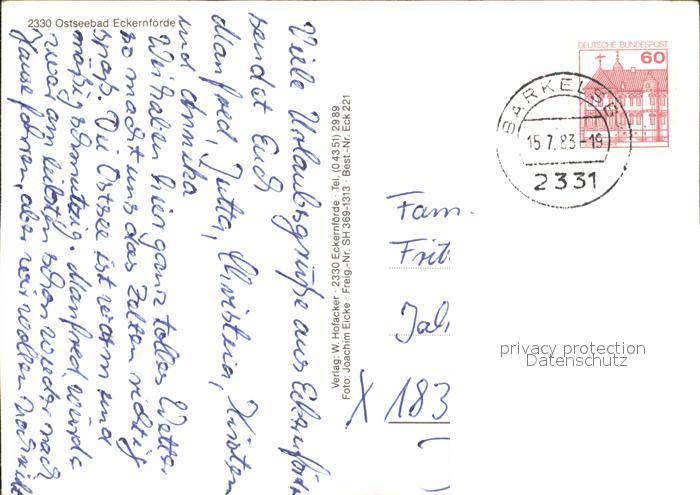 2330 Ostseebad Eckernförde
Viele Urlaubsgrüße aus Eckernförde
sendet Euch
Manfred, Jutta, Christina, Kirsten
und Annika
Wir haben hier ganz tolles Wetter
so macht uns das Zelten richtig
spaß. Die Ostsee ist warm und
mäßig schmutzig. Manfred würde
zwar am liebsten schon wieder nach
Hause fahren, aber wir wollen noch nicht
Verlag: W. Hofacker · 2330 Eckernförde · Tel. (0 43 51) 29 89
Foto: Joachim Eicke · Freig.-Nr. SH 369-1313 · Best.-Nr. Eck 221
DEUTSCHE BUNDESPOST
60
BARKELSBY
15.7.83-19
2331
Fam.
Frit
Jah
X 183
privacy protection
Datenschutz